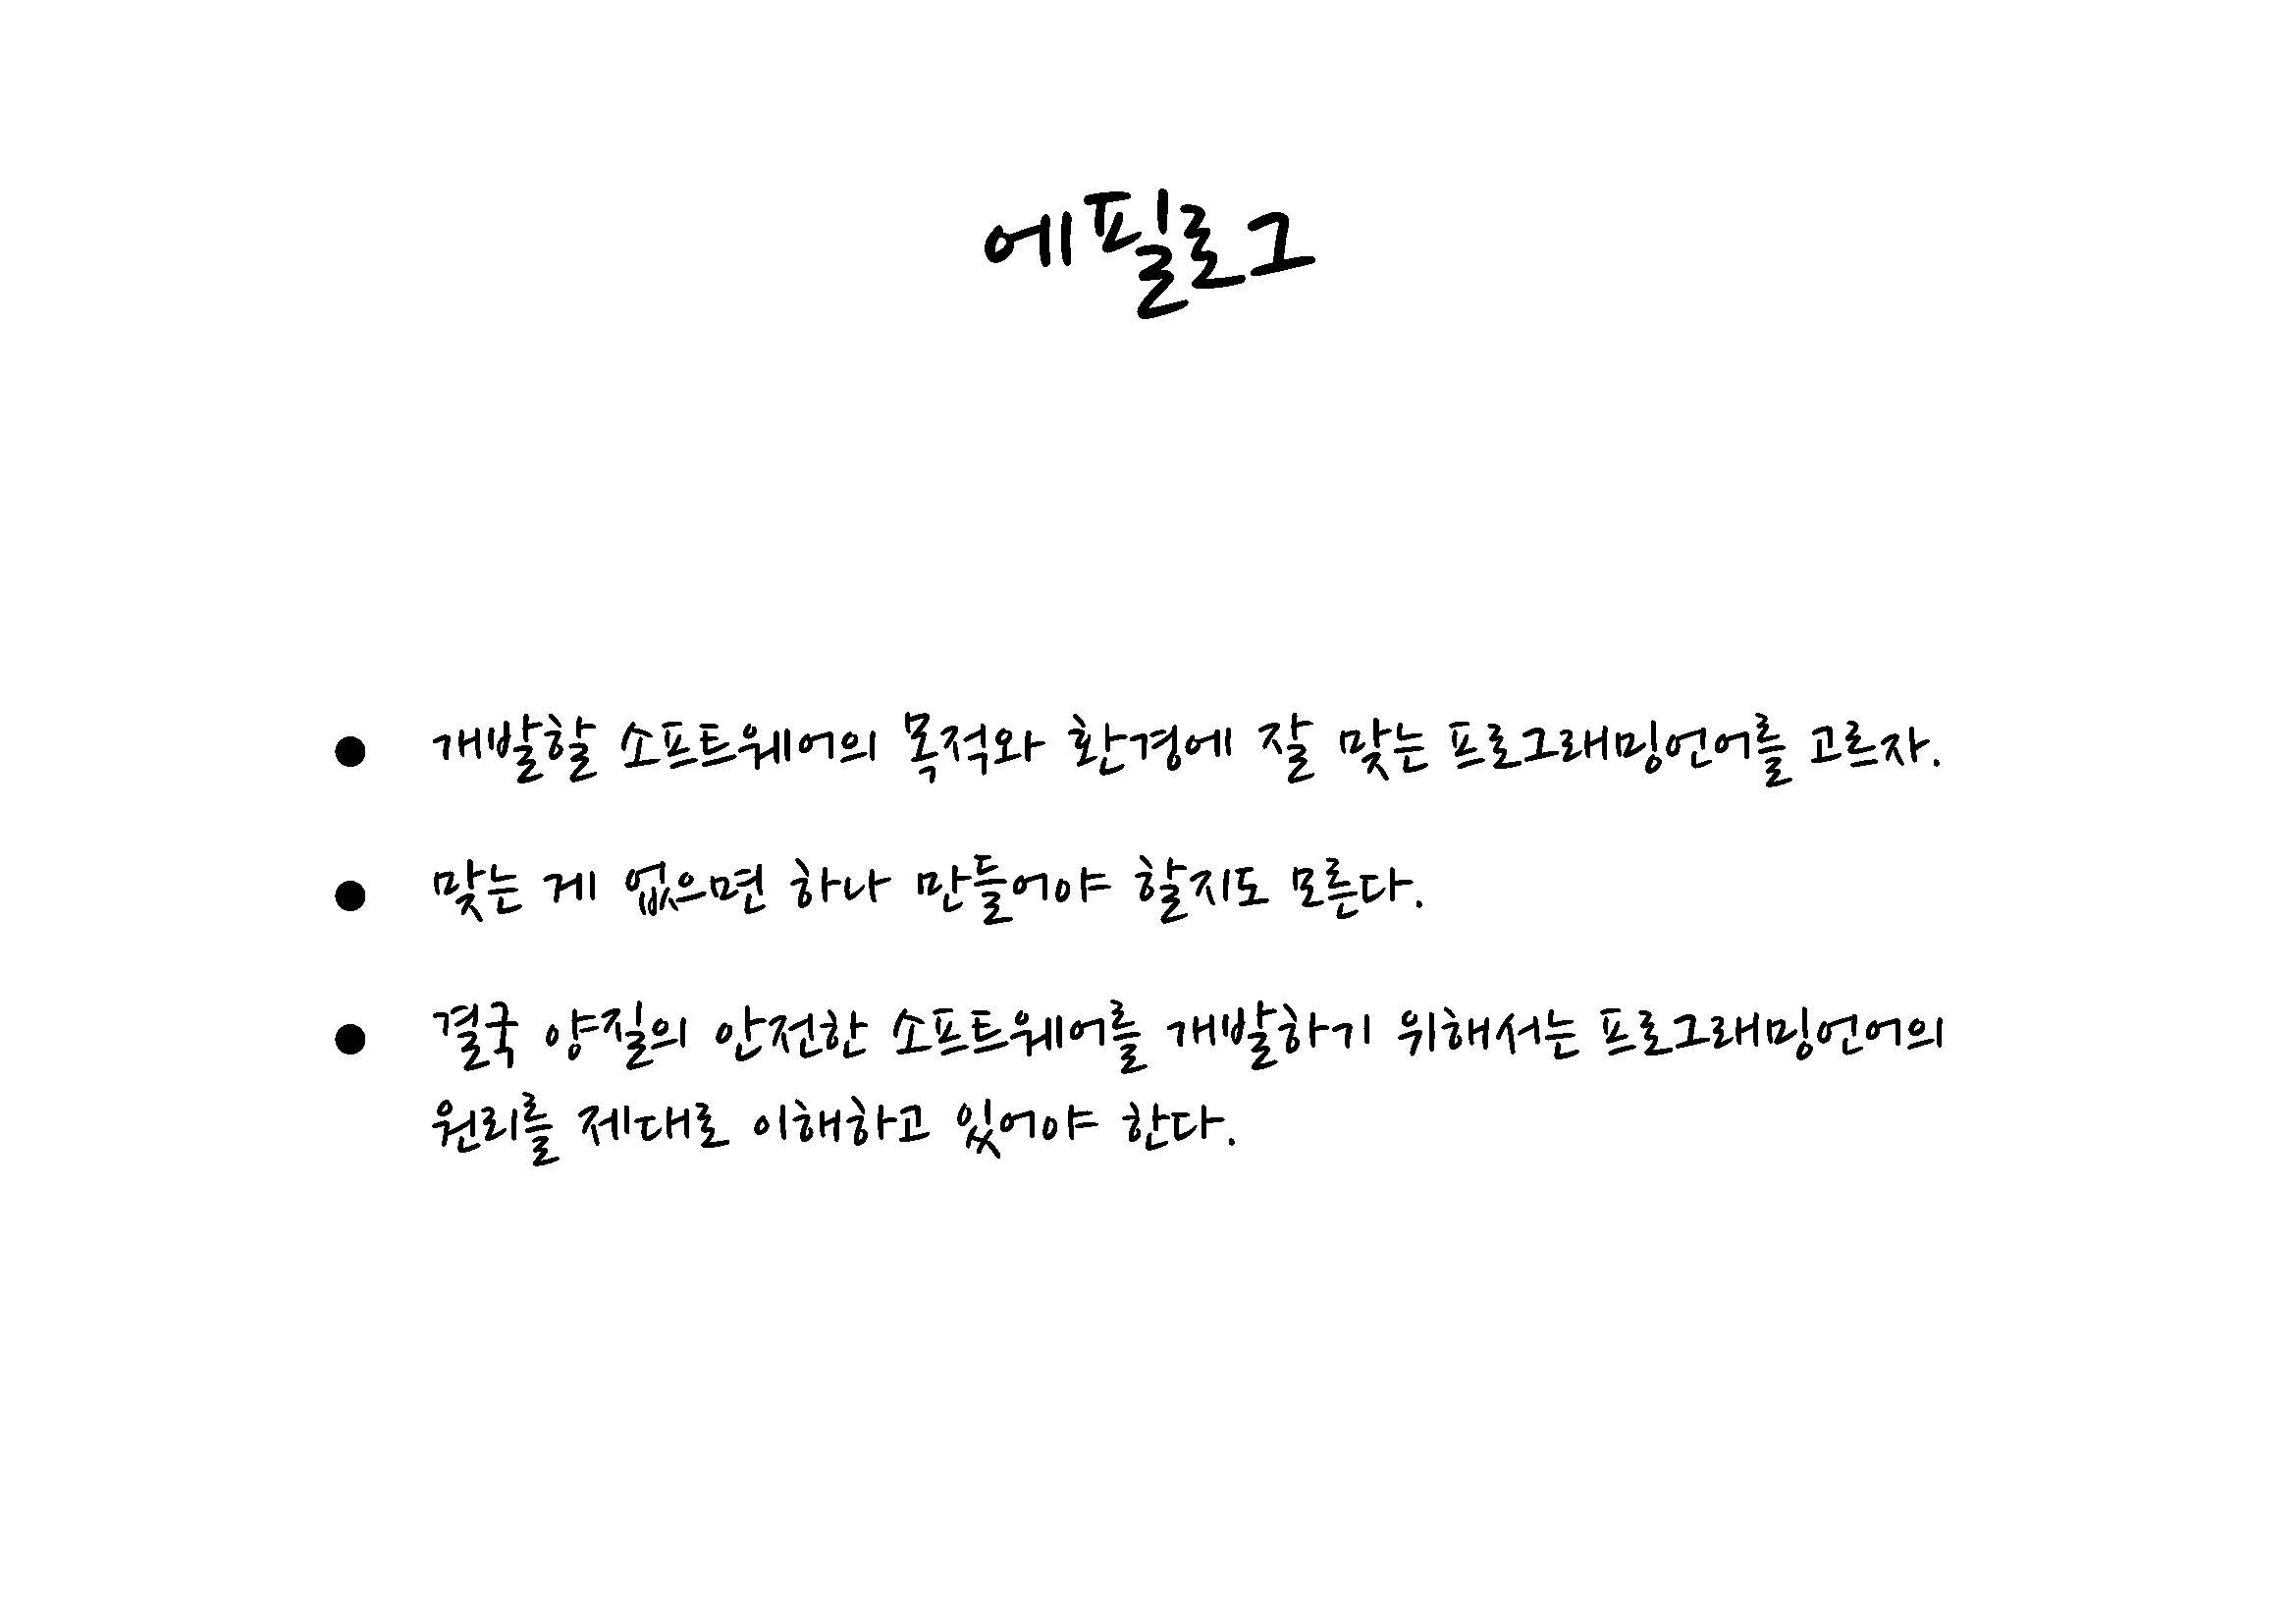 에필로그
● 개발할 소프트웨어의 목적와 환경에 잘 맞는 프로그래밍언어를 고르자.
● 맞는 게 없으면 하나 만들어야 할지도 모른다.
● 결국 양질의 안전한 소프트웨어를 개발하기 위해서는 프로그래밍언어의
원리를 제대로 이해하고 있어야 한다.